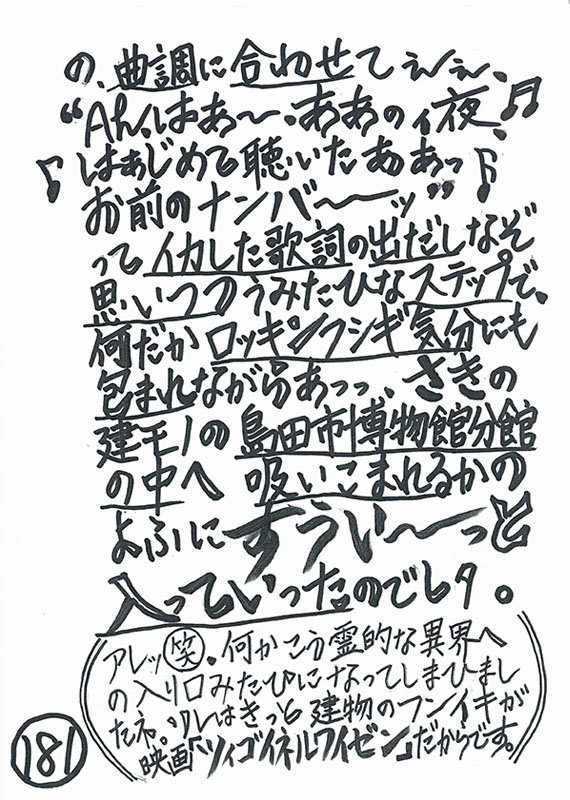 の、曲調に合わせてぇんぇ、
“Ah、はあ〜、ああのィ夜、♬
♪はぁじめて聴いたああっ♪
お前のナンバ〜〜ッ”
ってイカした歌詞の出だしなぞ
思いつつうみたひなステップで、
何だかロッキンフシギ気分にも
包まれながらあっっ、さきの
建モノの島田市博物館分館
の中へ 吸いこまれるかの
よふにすうぃ〜〜っと
入っていったのでしタ。
(アレッ㊤笑。何かこう霊的な異界へ
の入り口みたひになってしまひまし
たネ。ソレはきっと建物のフンイキが
映画「ツィゴイネルワイゼン」だからです。)
181